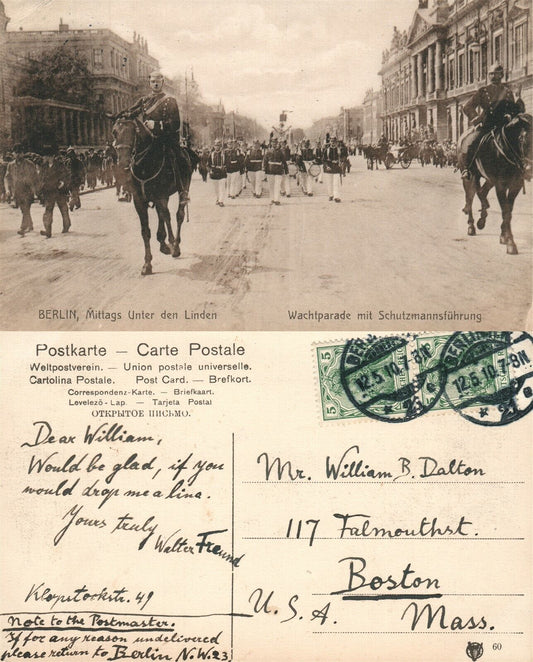 BERLIN, Mittags Unter den Linden
Wachtparade mit Schutzmannsführung
Postkarte — Carte Postale
Weltpostverein. — Union postale universelle.
Cartolina Postale. Post Card. — Brefkort.
Correspondenz-Karte. — Briefkaart.
Levelező-Lap. — Tarjeta Postal
ОТКРЫТОЕ ПИСЬМО.
5
5
12.5.10.7-8N
12.5.10.7-8N
Dear William,
Would be glad, if you
would drop me a line.
Yours truly
Walter Freund
Klopstockstr. 49
Note to the Postmaster.
If for any reason undelivered
please return to Berlin N.W.23
Mr. William B. Dalton
117 Falmouthst.
Boston
U.S.A. Mass.
60